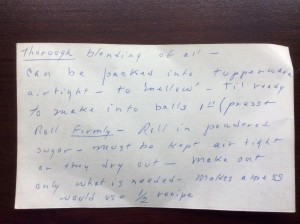 Thorough blending of all —
Can be packed into tupperware
airtight — to "mellow" — Til ready
to make into balls 1st (press
Roll Firmly — Roll in powdered
sugar — must be kept air tight
or they dry out — make out
only what is needed — makes a mess
would use 1/2 recipe